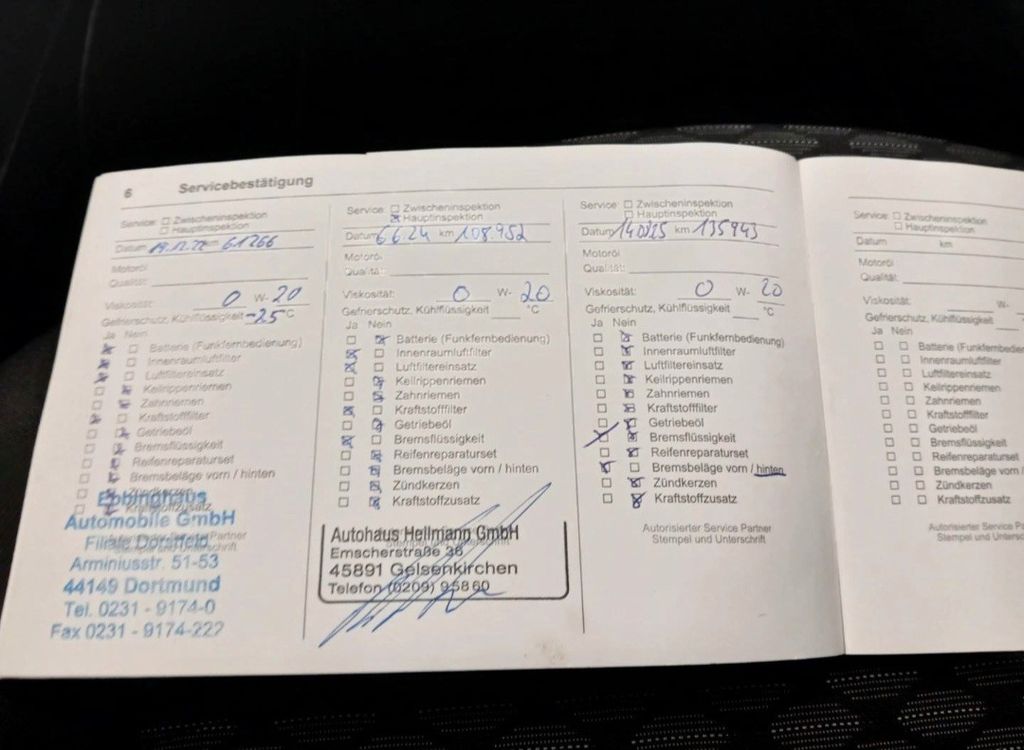 6 Servicebestätigung
Service: Zwischeninspektion
Hauptinspektion
Datum 19.12.22 61266
Motoröl
Qualität:
Viskosität: 0 W- 20
Gefrierschutz, Kühlflüssigkeit -25 °C
Ja Nein
Batterie (Funkfernbedienung)
Innenraumluftfilter
Luftfiltereinsatz
Keilrippenriemen
Zahnriemen
Kraftstofffilter
Getriebeöl
Bremsflüssigkeit
Reifenreparaturset
Bremsbeläge vorn / hinten
Zündkerzen
Kraftstoffzusatz
Ebbinghaus
Automobile GmbH
Filiale Dorstfeld
Arminiusstr. 51-53
44149 Dortmund
Tel. 0231 - 9174-0
Fax 0231 - 9174-222
Service: Zwischeninspektion
Hauptinspektion
Datum 6.6.24 km 108.952
Motoröl
Qualität:
Viskosität: 0 W- 20
Gefrierschutz, Kühlflüssigkeit °C
Ja Nein
Batterie (Funkfernbedienung)
Innenraumluftfilter
Luftfiltereinsatz
Keilrippenriemen
Zahnriemen
Kraftstofffilter
Getriebeöl
Bremsflüssigkeit
Reifenreparaturset
Bremsbeläge vorn / hinten
Zündkerzen
Kraftstoffzusatz
Autohaus Hellmann GmbH
Stempel und Unterschrift
Emscherstraße 36
45891 Gelsenkirchen
Telefon (0209) 9 58 60
Service: Zwischeninspektion
Hauptinspektion
Datum km 135943
Motoröl
Qualität:
Viskosität: 0 W- 20
Gefrierschutz, Kühlflüssigkeit °C
Ja Nein
Batterie (Funkfernbedienung)
Innenraumluftfilter
Luftfiltereinsatz
Keilrippenriemen
Zahnriemen
Kraftstofffilter
Getriebeöl
Bremsflüssigkeit
Reifenreparaturset
Bremsbeläge vorn / hinten
Zündkerzen
Kraftstoffzusatz
Autorisierter Service Partner
Stempel und Unterschrift
Service: Zwischeninspektion
Hauptinspektion
Datum km
Motoröl
Qualität:
Viskosität: W-
Gefrierschutz, Kühlflüssigkeit
Ja Nein
Batterie (Funkfernbedie
Innenraumluftfilter
Luftfiltereinsatz
Keilrippenriemen
Zahnriemen
Kraftstofffilter
Getriebeöl
Bremsflüssigkeit
Reifenreparaturset
Bremsbeläge vorn / h
Zündkerzen
Kraftstoffzusatz
Autorisierter Service Pa
Stempel und Unterschr